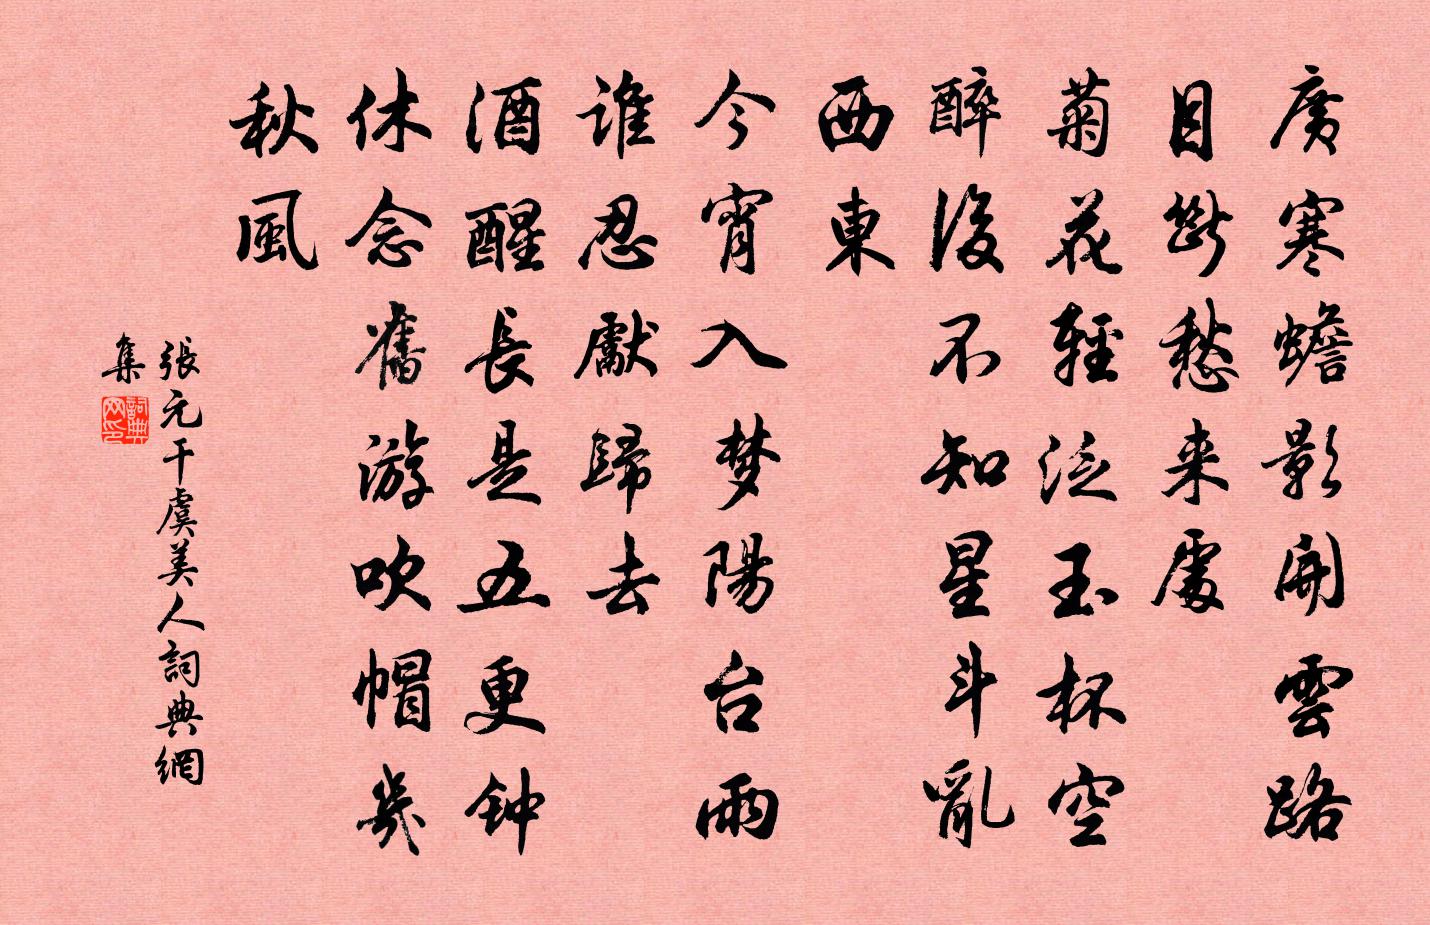 廣寒蟾影開雲路
目斷愁来處
菊花輕泛玉杯空
醉後不知星斗亂
西東
今宵入梦陽台雨
谁忍獻歸去
酒醒長是五更钟
休念舊游吹帽幾
秋風
張元干虞美人詞典網
集
詞典网印